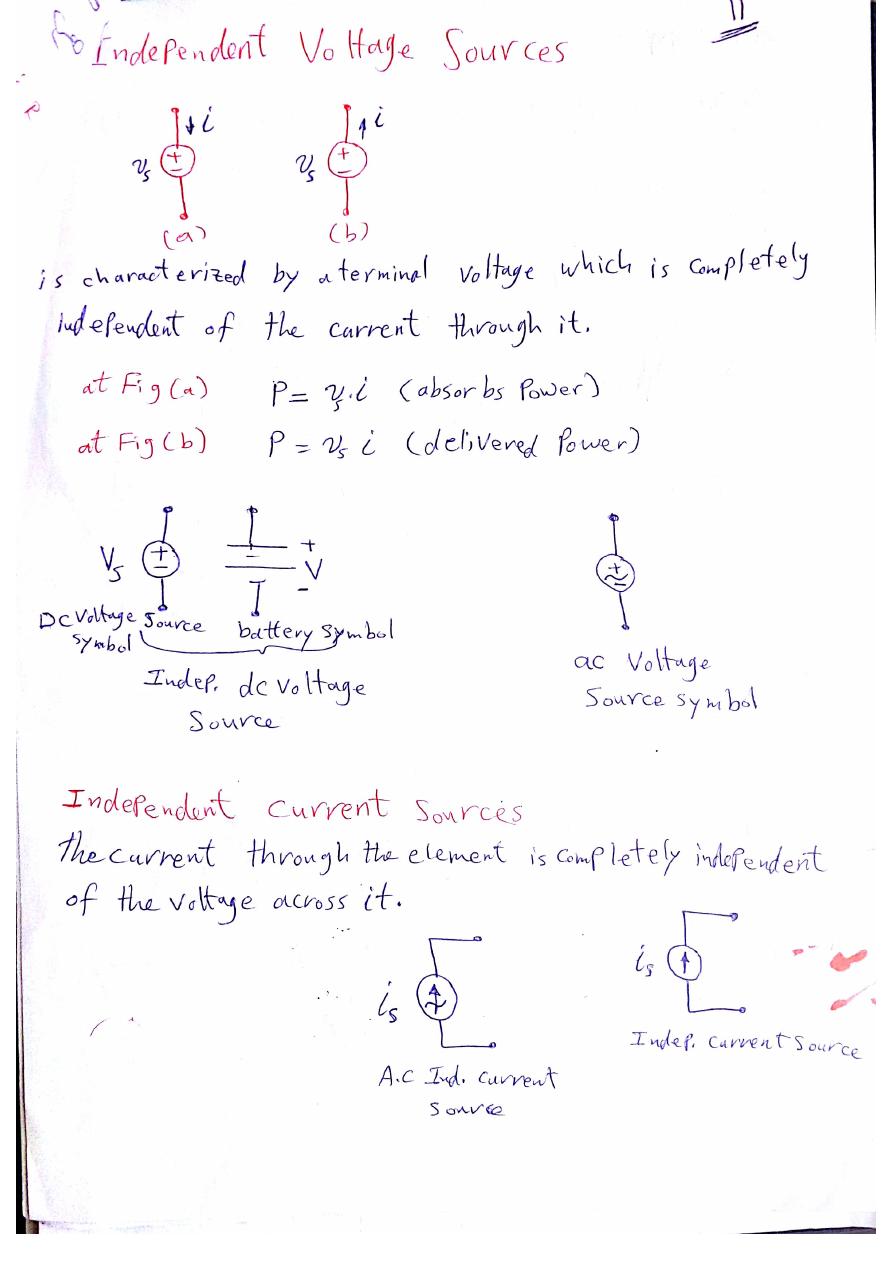 11
Independent Voltage Sources
i
i
vs
+
-
vs
+
-
(a)
(b)
is characterized by a terminal voltage which is completely
independent of the current through it.
at Fig (a) P = vs.i (absorbs Power)
at Fig (b) P = vs i (delivered Power)
Vs
+
-
+
V
-
+
~
DC Voltage Source
symbol
battery symbol
Indep. dc voltage
Source
ac Voltage
Source symbol
Independent Current Sources
The current through the element is completely independent
of the voltage across it.
is
is
Indep. Current Source
A.C Ind. Current
Source